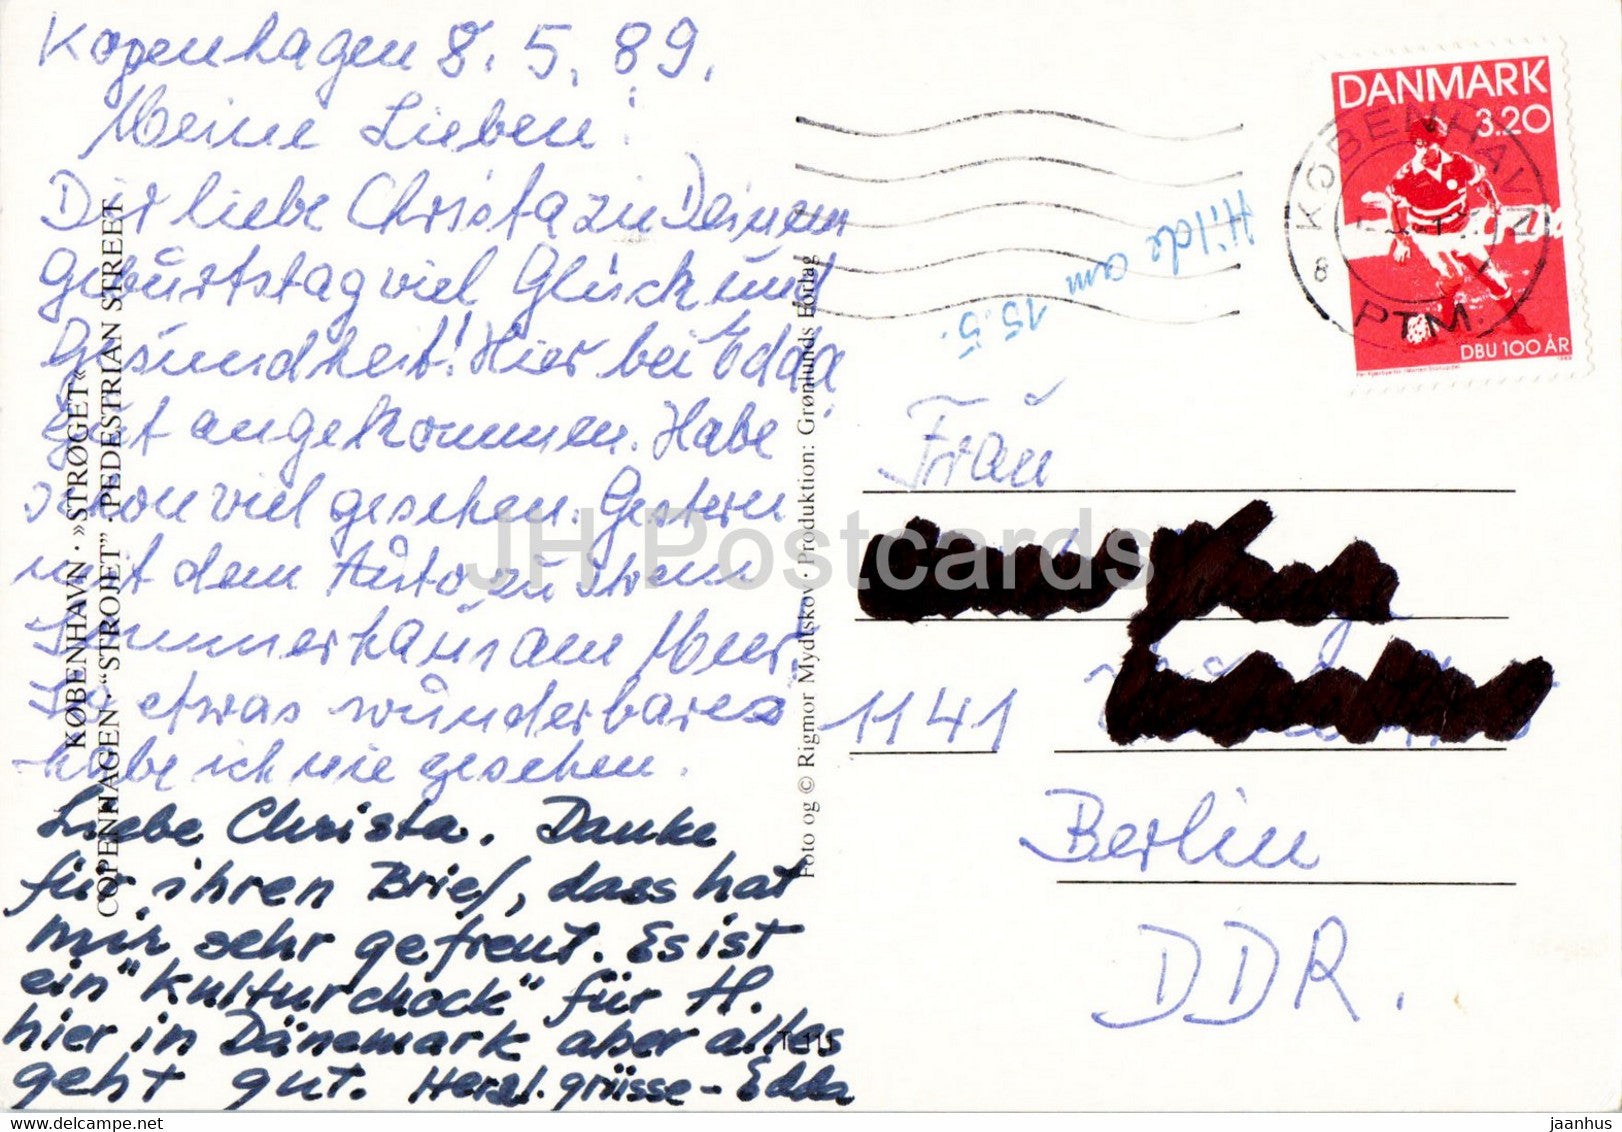 Kopenhagen 8.5.89.
Meine Lieben!
Dir liebe Christa zu Deinem
Geburtstag viel Glück und
Gesundheit! Hier bei Edda
gut angekommen. Habe
schon viel gesehen. Gestern
mit dem Auto zu ihrem
Sommerhaus am Meer
So etwas wunderbares
habe ich nie gesehen.
Liebe Christa. Danke
für ihren Brief, dass hat
mir sehr gefreut. Es ist
ein "Kulturchock" für H.
hier in Dänemark aber alles
geht gut. Herzl. grüsse - Edda
KØBENHAVN · »STRØGET«
COPENHAGEN · “STROJET” · PEDESTRIAN STREET
Foto og © Rigmor Mydtskov · Produktion: Grønlunds Forlag
T 111
Hilde am
15.5.
DANMARK
3.20
DBU 100 ÅR
KØBENHAVN
8
PTM.
Frau
1141
Berlin
DDR.
JH Postcards
jaanhus